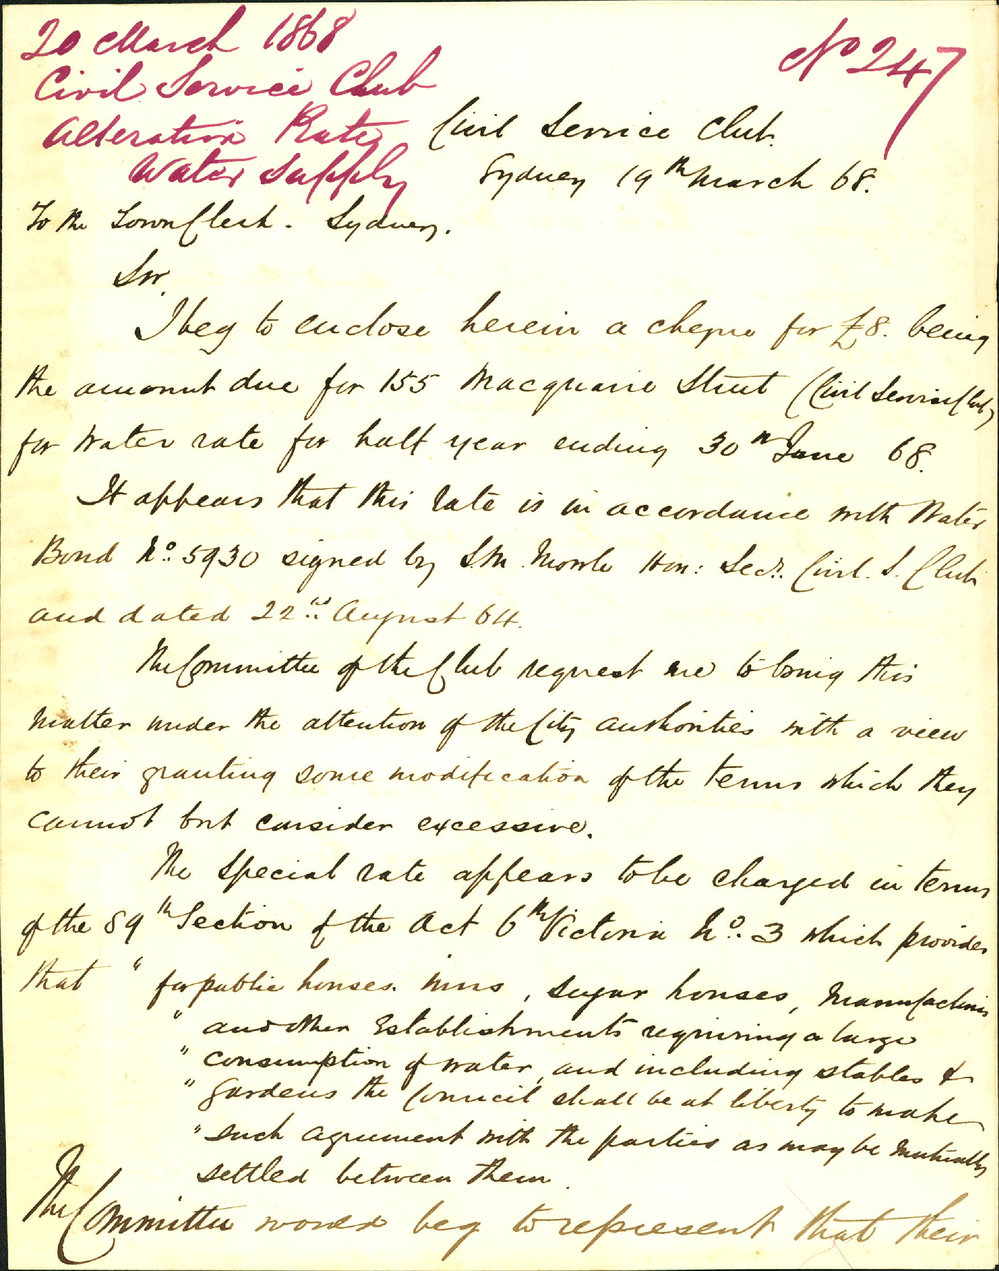 20 March 1868
Civil Service Club
Alteration Rate
Water Supply
No 247
Civil Service Club.
Sydney 19th March 68.
To the Town Clerk. Sydney.
Sir.
I beg to enclose herein a cheque for £8. being
the amount due for 155 Macquarie Street (Civil Service Club)
for Water rate for half year ending 30th June 68.
It appears that this rate is in accordance with Water
Bond No. 5930 signed by S.M. Mowle Hon: Secr. Civil. S. Club
and dated 22nd August 64.
The Committee of the Club request me to bring this
matter under the attention of the City authorities with a view
to their granting some modification of the terms which they
cannot but consider excessive.
The special rate appears to be charged in terms
of the 89th Section of the Act 6th Victoria No. 3 which provides
that " for public houses. Inns, sugar houses, Manufactories
" and other Establishments requiring a large
" consumption of water, and including stables &
" gardens the Council shall be at liberty to make
" such agreement with the parties as may be mutually
settled between them.
The Committee would beg to represent that their